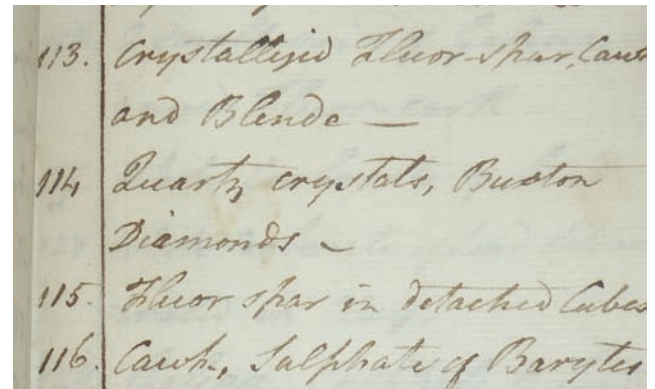 113. Crystallized Fluor-spar, Cawk
and Blende —
114 Quartz crystals, Buxton
Diamonds —
115. Fluor spar in detached Cubes
116. Cawk, Sulphate of Barytes